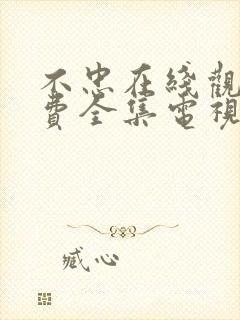 不忠在綫觀
費全集電視
臧心